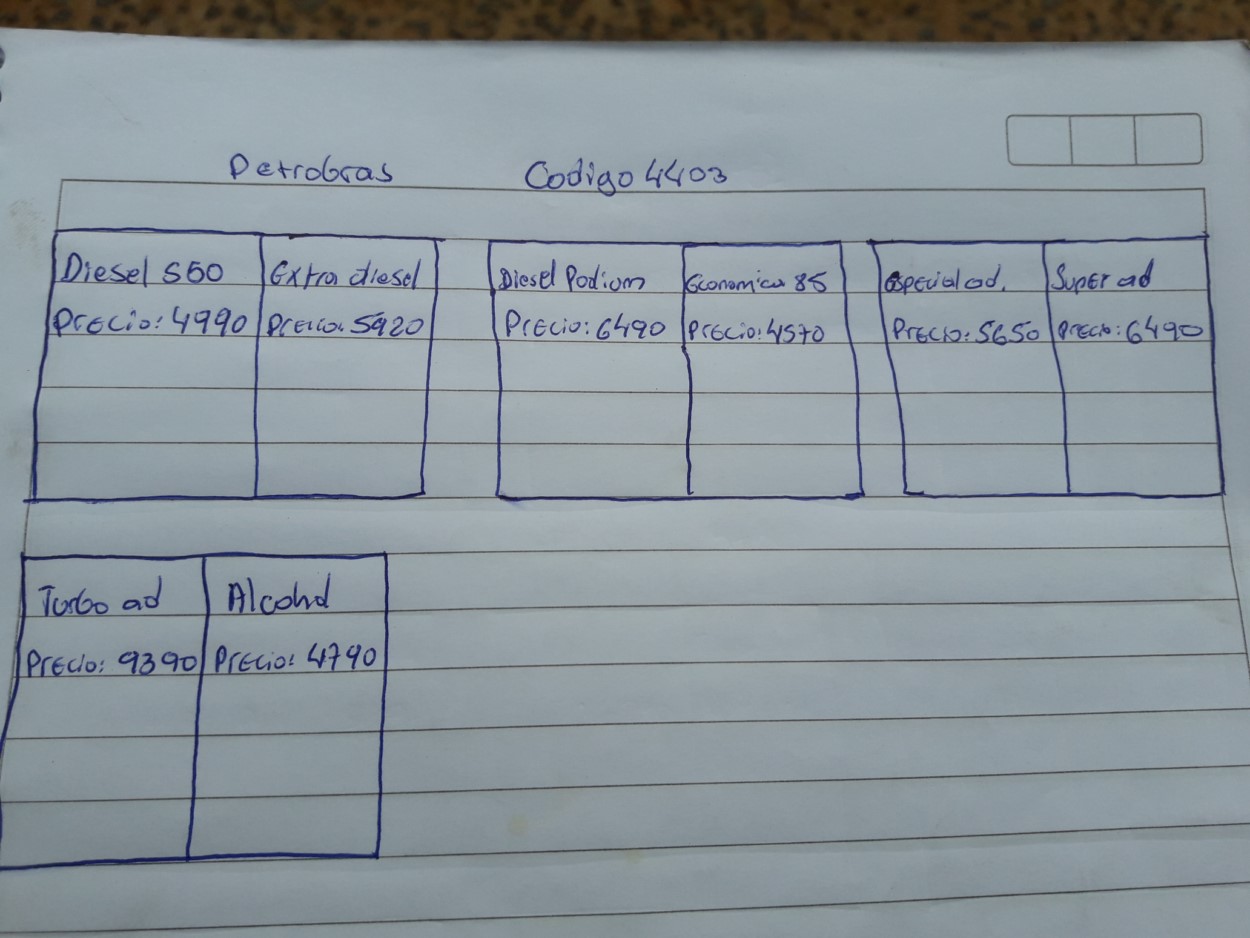 Petrobras Codigo 4403
Diesel S50 Extra diesel Diesel Podium Economica 85 especial ad. Super ad
Precio: 4990 Precio: 5920 Precio: 6490 Precio: 4570 Precio: 5650 Precio: 6490
Turbo ad Alcohol
Precio: 9390 Precio: 4790